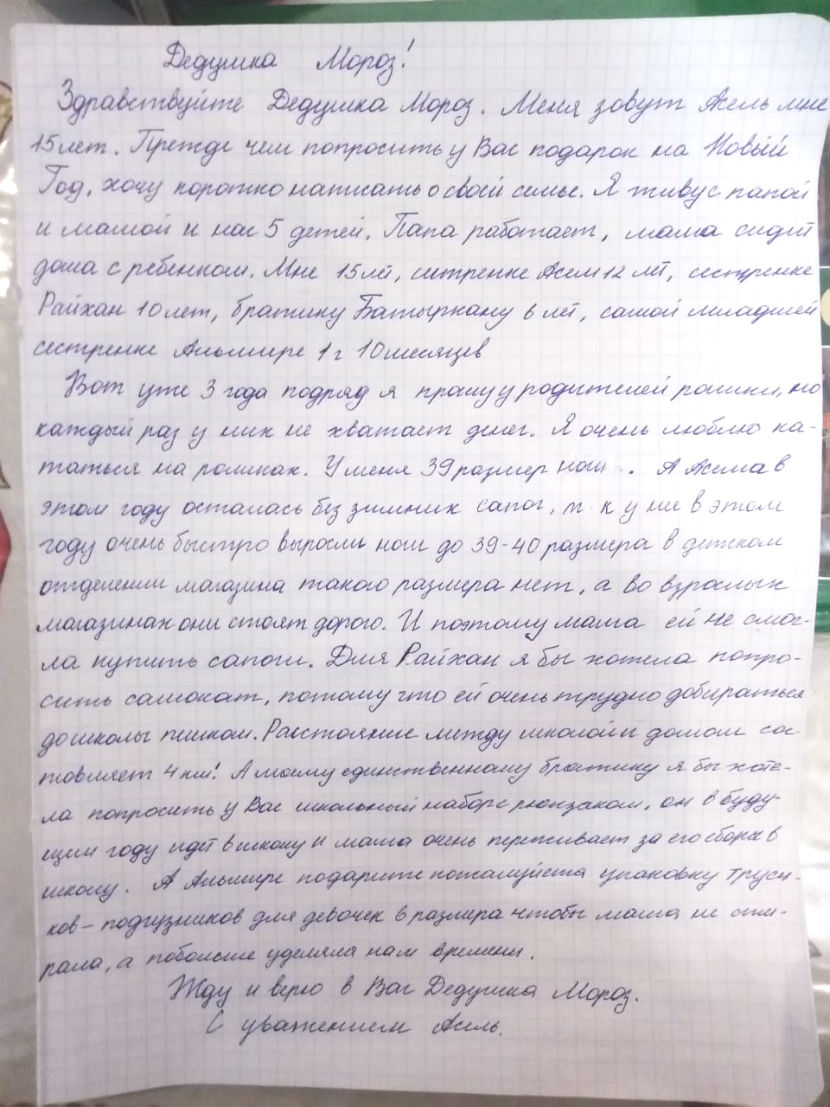 Дедушка Мороз!
Здравствуйте Дедушка Мороз. Меня зовут Асель мне
15 лет. Прежде чем попросить у Вас подарок на Новый
Год, хочу коротко написать о своей семье. Я живу с папой
и мамой и нас 5 детей. Папа работает, мама сидит
дома с ребенком. Мне 15 лет, сестренке Асем 12 лет, сестренке
Райхан 10 лет, братику Батырхану 6 лет, самой младшей
сестренке Альмире 1 г 10 месяцев
Вот уже 3 года подряд я прошу у родителей ролики, но
каждый раз у них не хватает денег. Я очень люблю ка-
таться на роликах. У меня 39 размер ноги. А Асема в
этом году осталась без зимних сапог, т.к у нее в этом
году очень быстро выросли ноги до 39-40 размера в детском
отделении магазина такого размера нет, а во взрослых
магазинах они стоят дорого. И поэтому мама ей не смог-
ла купить сапоги. Для Райхан я бы хотела попро-
сить самокат, потому что ей очень трудно добираться
до школы пешком. Расстояние между школой и домом сос-
тавляет 4 км! А моему единственному братику я бы хоте-
ла попросить у Вас школьный набор с рюкзаком, он в буду-
щем году идет в школу и мама очень переживает за его сборы в
школу. А Альмире подарите пожалуйста упаковку труси-
ков - подгузников для девочек 6 размера чтобы мама не сти-
рала, а побольше уделяла нам времени.
Жду и верю в Вас Дедушка Мороз.
С уважением Асель.